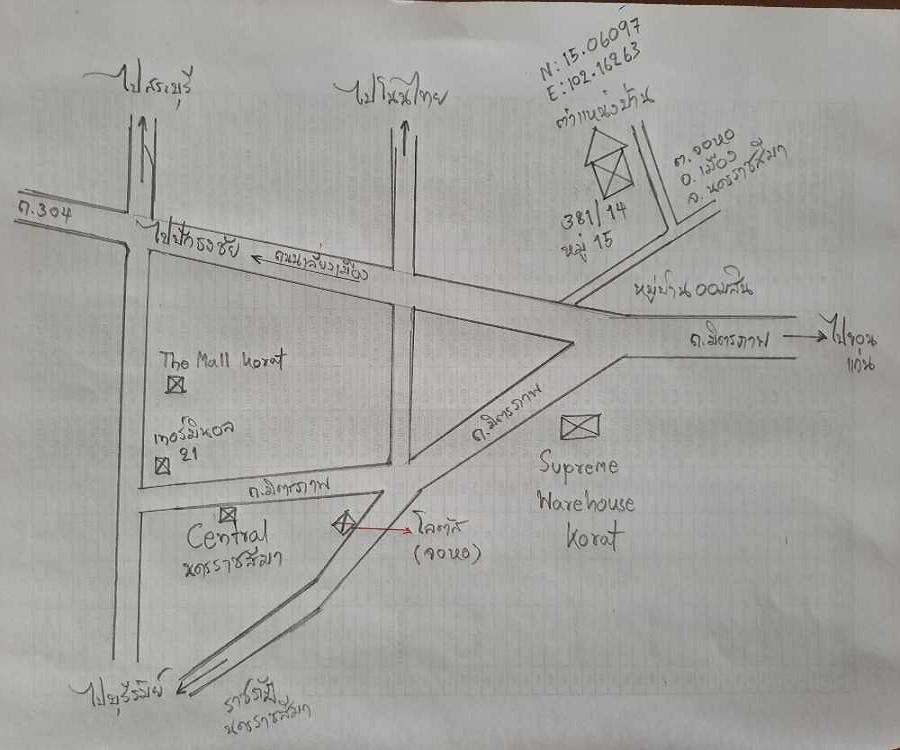 N: 15.06097
E: 102.16263
ตำแหน่งบ้าน
ไปสระบุรี
ไปโนนไทย
ต.จอหอ
อ.เมือง
จ.นครราชสีมา
381/14
หมู่ 15
ถ.304
ไปปักธงชัย
ถนนเลี่ยงเมือง
หมู่บ้านออมสิน
ถ.มิตรภาพ
ไปขอน
แก่น
The Mall Korat
เทอร์มินอล
21
ถ.มิตรภาพ
Supreme
Warehouse
Korat
ถ.มิตรภาพ
Central
นครราชสีมา
โลตัส
(จอหอ)
ไปบุรีรัมย์
ราชภัฏ
นครราชสีมา